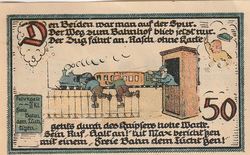 Den Beiden war man auf der Spur.
Der Weg zum Bahnhof blieb jetzt nur.
Der Zug fährt an. Rasch ohne Karte
50
gehts durch des Knipsers hohe Warte.
Sein Ruf: Halt an! tut Max berichtigen
mit einem: Freie Bahn dem Tüchtigen!